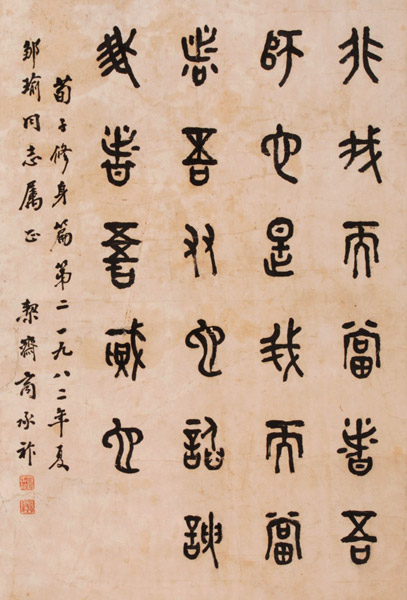 非我而當者吾
師也是我而當
者吾友也諂諛
我者吾賊也
荀子修身篇第二一九八二年夏
鄒瑜同志属正 栔齋商承祚